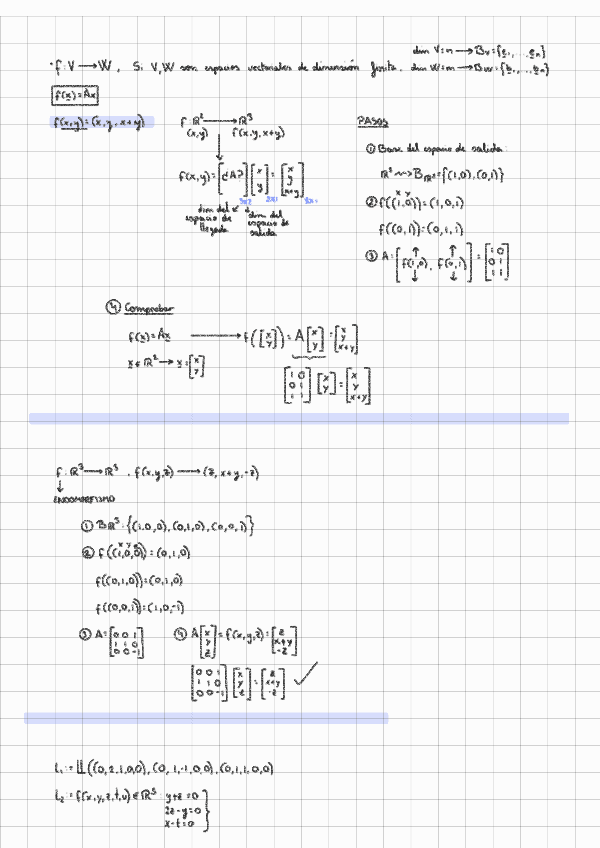 dim V=n ⟶ B_V={e₁,...,e_n}
· f: V ⟶ W, Si V,W son espacios vectoriales de dimensión finita. dim W=m ⟶ B_W={b₁,...,b_n}
f(x)=Ax
f(x,y)=(x,y,x+y)
f: ℝ² ⟶ ℝ³
(x,y) f(x,y,x+y)
f(x,y)=[¿A?] [x y] = [x y x+y]
3x2 2x1 3x1
dim del espacio de llegada
dim del espacio de salida
PASOS
① Base del espacio de salida:
ℝ² ⇝ B_ℝ²={(1,0),(0,1)}
x y
② f((1,0))=(1,0,1)
f((0,1))=(0,1,1)
③ A=[f(1,0), f(0,1)] = [1 0; 0 1; 1 1]
④ Comprobar
f(x)=Ax ⟶ f([x y])=A[x y]=[x y x+y]
x∈ℝ² → x=[x y]
[1 0; 0 1; 1 1] [x y] = [x y x+y]
f: ℝ³ ⟶ ℝ³, f(x,y,z) ⟶ (z, x+y, -z)
↓
ENDOMORFISMO
① Bℝ³: {(1,0,0),(0,1,0),(0,0,1)}
x y z
② f((1,0,0))=(0,1,0)
f((0,1,0))=(0,1,0)
f((0,0,1))=(1,0,-1)
③ A=[0 0 1; 1 1 0; 0 0 -1] ④ A[x y z]=f(x,y,z)=[z x+y -z]
[0 0 1; 1 1 0; 0 0 -1] [x y z] = [z x+y -z] ✓
L₁:=𝕃((0,2,1,0,0),(0,1,-1,0,0),(0,1,1,0,0)
L₂:={(x,y,z,t,u)∈ℝ⁵: y+z=0
2z-y=0
x-t=0}